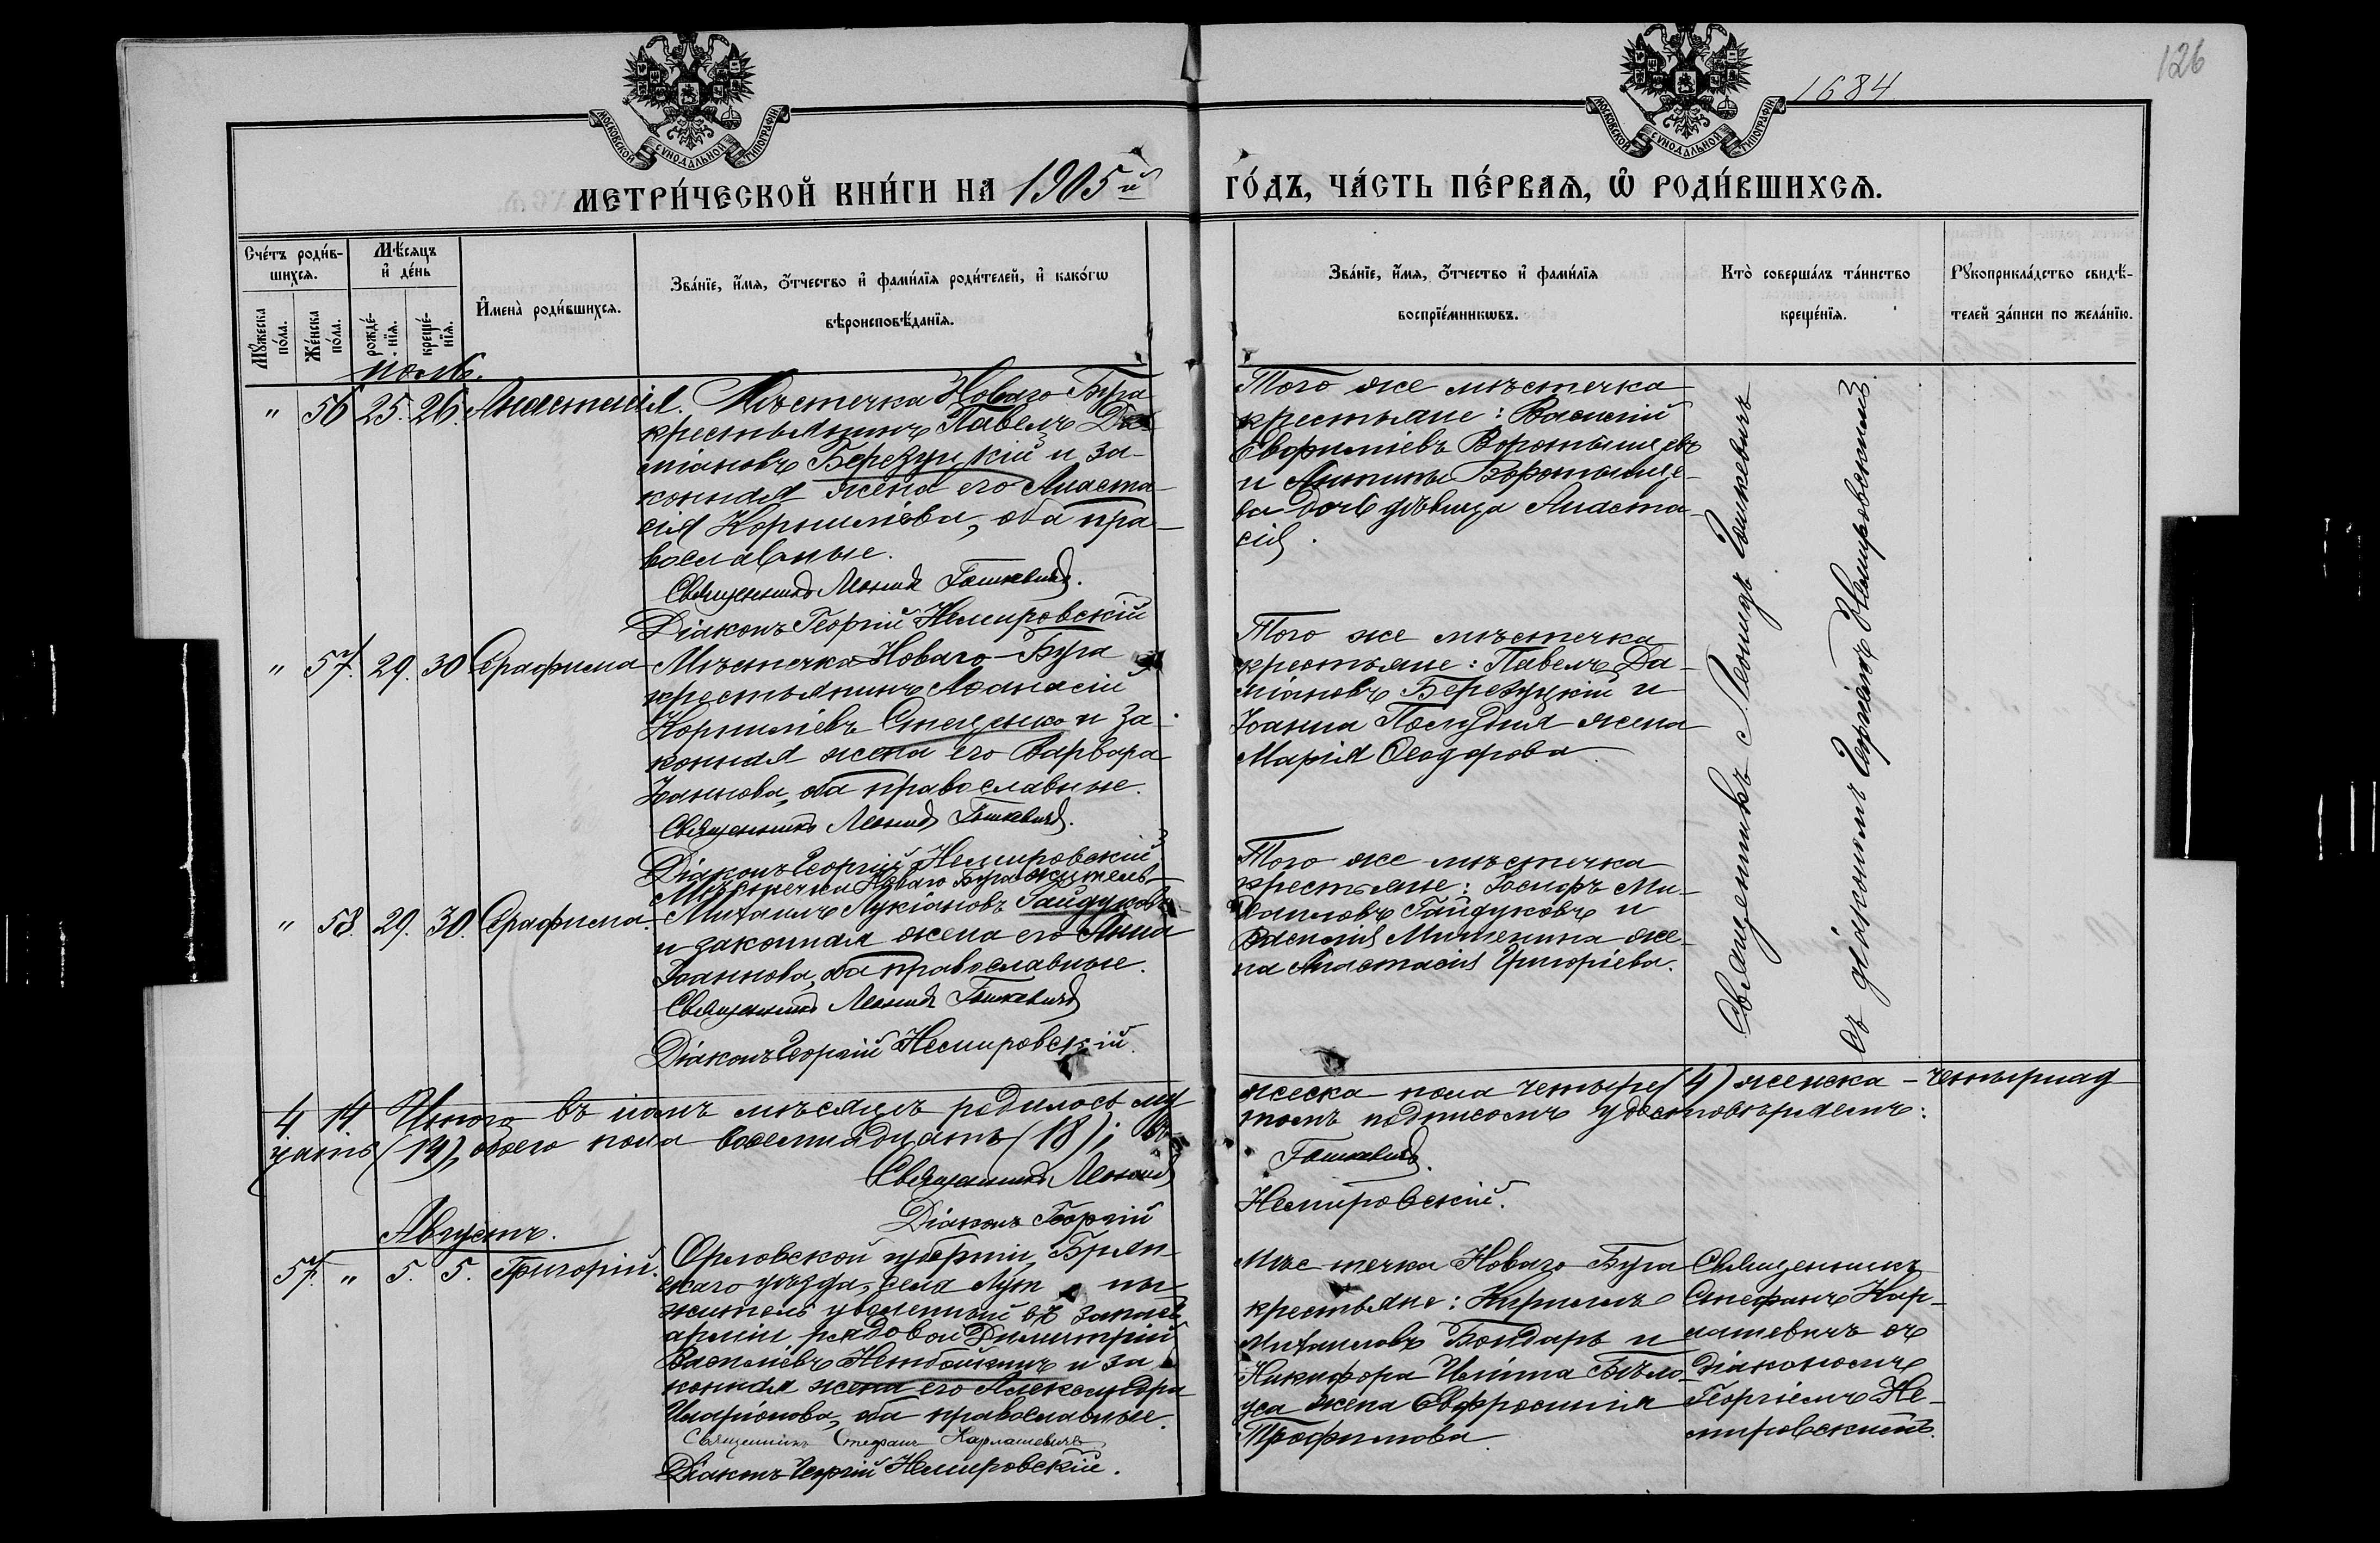 126
1684
МОСКОВСКОЙ СѴНОДАЛЬНОЙ ТИПОГРАФІИ
МОСКОВСКОЙ СѴНОДАЛЬНОЙ ТИПОГРАФІИ
МЕТРИ́ЧЕСКОЙ КНИ́ГИ НА 1905й ГО́ДЪ, ЧА́СТЬ ПЕ́РВАѦ, Ѡ҆ РОДИ́ВШИХСѦ.
Сче́тъ роди́в-
шихсѧ.
Мѣ́сѧцъ
и҆ де́нь
Мꙋ́жеска
по́ла.
Же́нска
по́ла.
рожде́-
нїѧ.
креще́-
нїѧ.
И҆мена̀ роди́вшихсѧ.
Зва́нїе, и҆́мѧ, ѻ҆́тчество и҆ фами́лїѧ роди́телей, и҆ како́гѡ
вѣроисповѣ́данїѧ.
Зва́нїе, и҆́мѧ, ѻ҆́тчество и҆ фами́лїѧ
воспрїе́мникѡвъ.
Кто̀ соверша́лъ та́инство
креще́нїѧ.
Рꙋкоприкла́дство свидѣ́-
телей за́писи по жела́нїю.
Іюль.
" 56 25. 26. Анастасія.
Мѣстечка Новаго Буга
крестьянинъ Павелъ Да
міановъ Березуцкій и за-
конная жена его Анаста
сія Корниліева, оба пра-
вославные.
Священникъ Леонидъ Гошкевичъ.
Діаконъ Георгій Немировскій
Того же мѣстечка
крестьяне: Василій
Евфиміевъ Воротынцевъ
и Антипы Воротынце-
ва дочь дѣвица Анаста
сія.
" 57. 29. 30 Серафима
Мѣстечка Новаго Буга
крестьянинъ Аѳанасій
Корниліевъ Стеценко и за-
конная жена его Варвара
Іоаннова, оба православные.
Священникъ Леонидъ Гошкевичъ.
Діаконъ Георгій Немировскій
Того же мѣстечка
крестьяне: Павелъ Да-
міановъ Березуцкій и
Іоанна жена
Марія Ѳеодорова
" 58. 29. 30. Серафима.
Мѣстечка Новаго Буга житель
Михаилъ Лукіановъ Гайдуковъ
и законная жена его Анна
Іоаннова, оба православные.
Священникъ Леонидъ Гошкевичъ
Діаконъ Георгій Немировскій.
Того же мѣстечка
крестьяне: Іосифъ Ми-
хаиловъ Гайдуковъ и
Василія Митенина же-
на Анастасія Григоріева.
Священникъ Леонидъ Гошкевичъ
съ діакономъ Георгіемъ Немировскимъ.
4 14 Итого въ іюлѣ мѣсяцѣ родилось му жеска пола четыре (4) женска - четырнад
цать (14), обоего пола восемнадцать (18); въ томъ подписомъ удостовѣряемъ:
Священникъ Леонидъ Гошкевичъ.
Діаконъ Георгій Немировскій.
Августъ.
57. " 5. 5. Григорій.
Орловской губерніи, Брян-
скаго уѣзда, села
житель уволенный въ запасъ
арміи рядовой Димитрій
Василіевъ и за
конная жена его Александра
Иларіонова, оба православные.
Священникъ Стефанъ Карлашевичъ
Діаконъ Георгій Немировскій.
Мѣстечка Новаго Буга
крестьяне: Кириллъ
Михаиловъ Бондарь и
Никифора Иліина Бѣло-
уса жена Евфросинія
Трофимова.
Священникъ
Стефанъ Кар-
лашевичъ съ
Діакономъ
Георгіемъ Не-
мировскимъ.